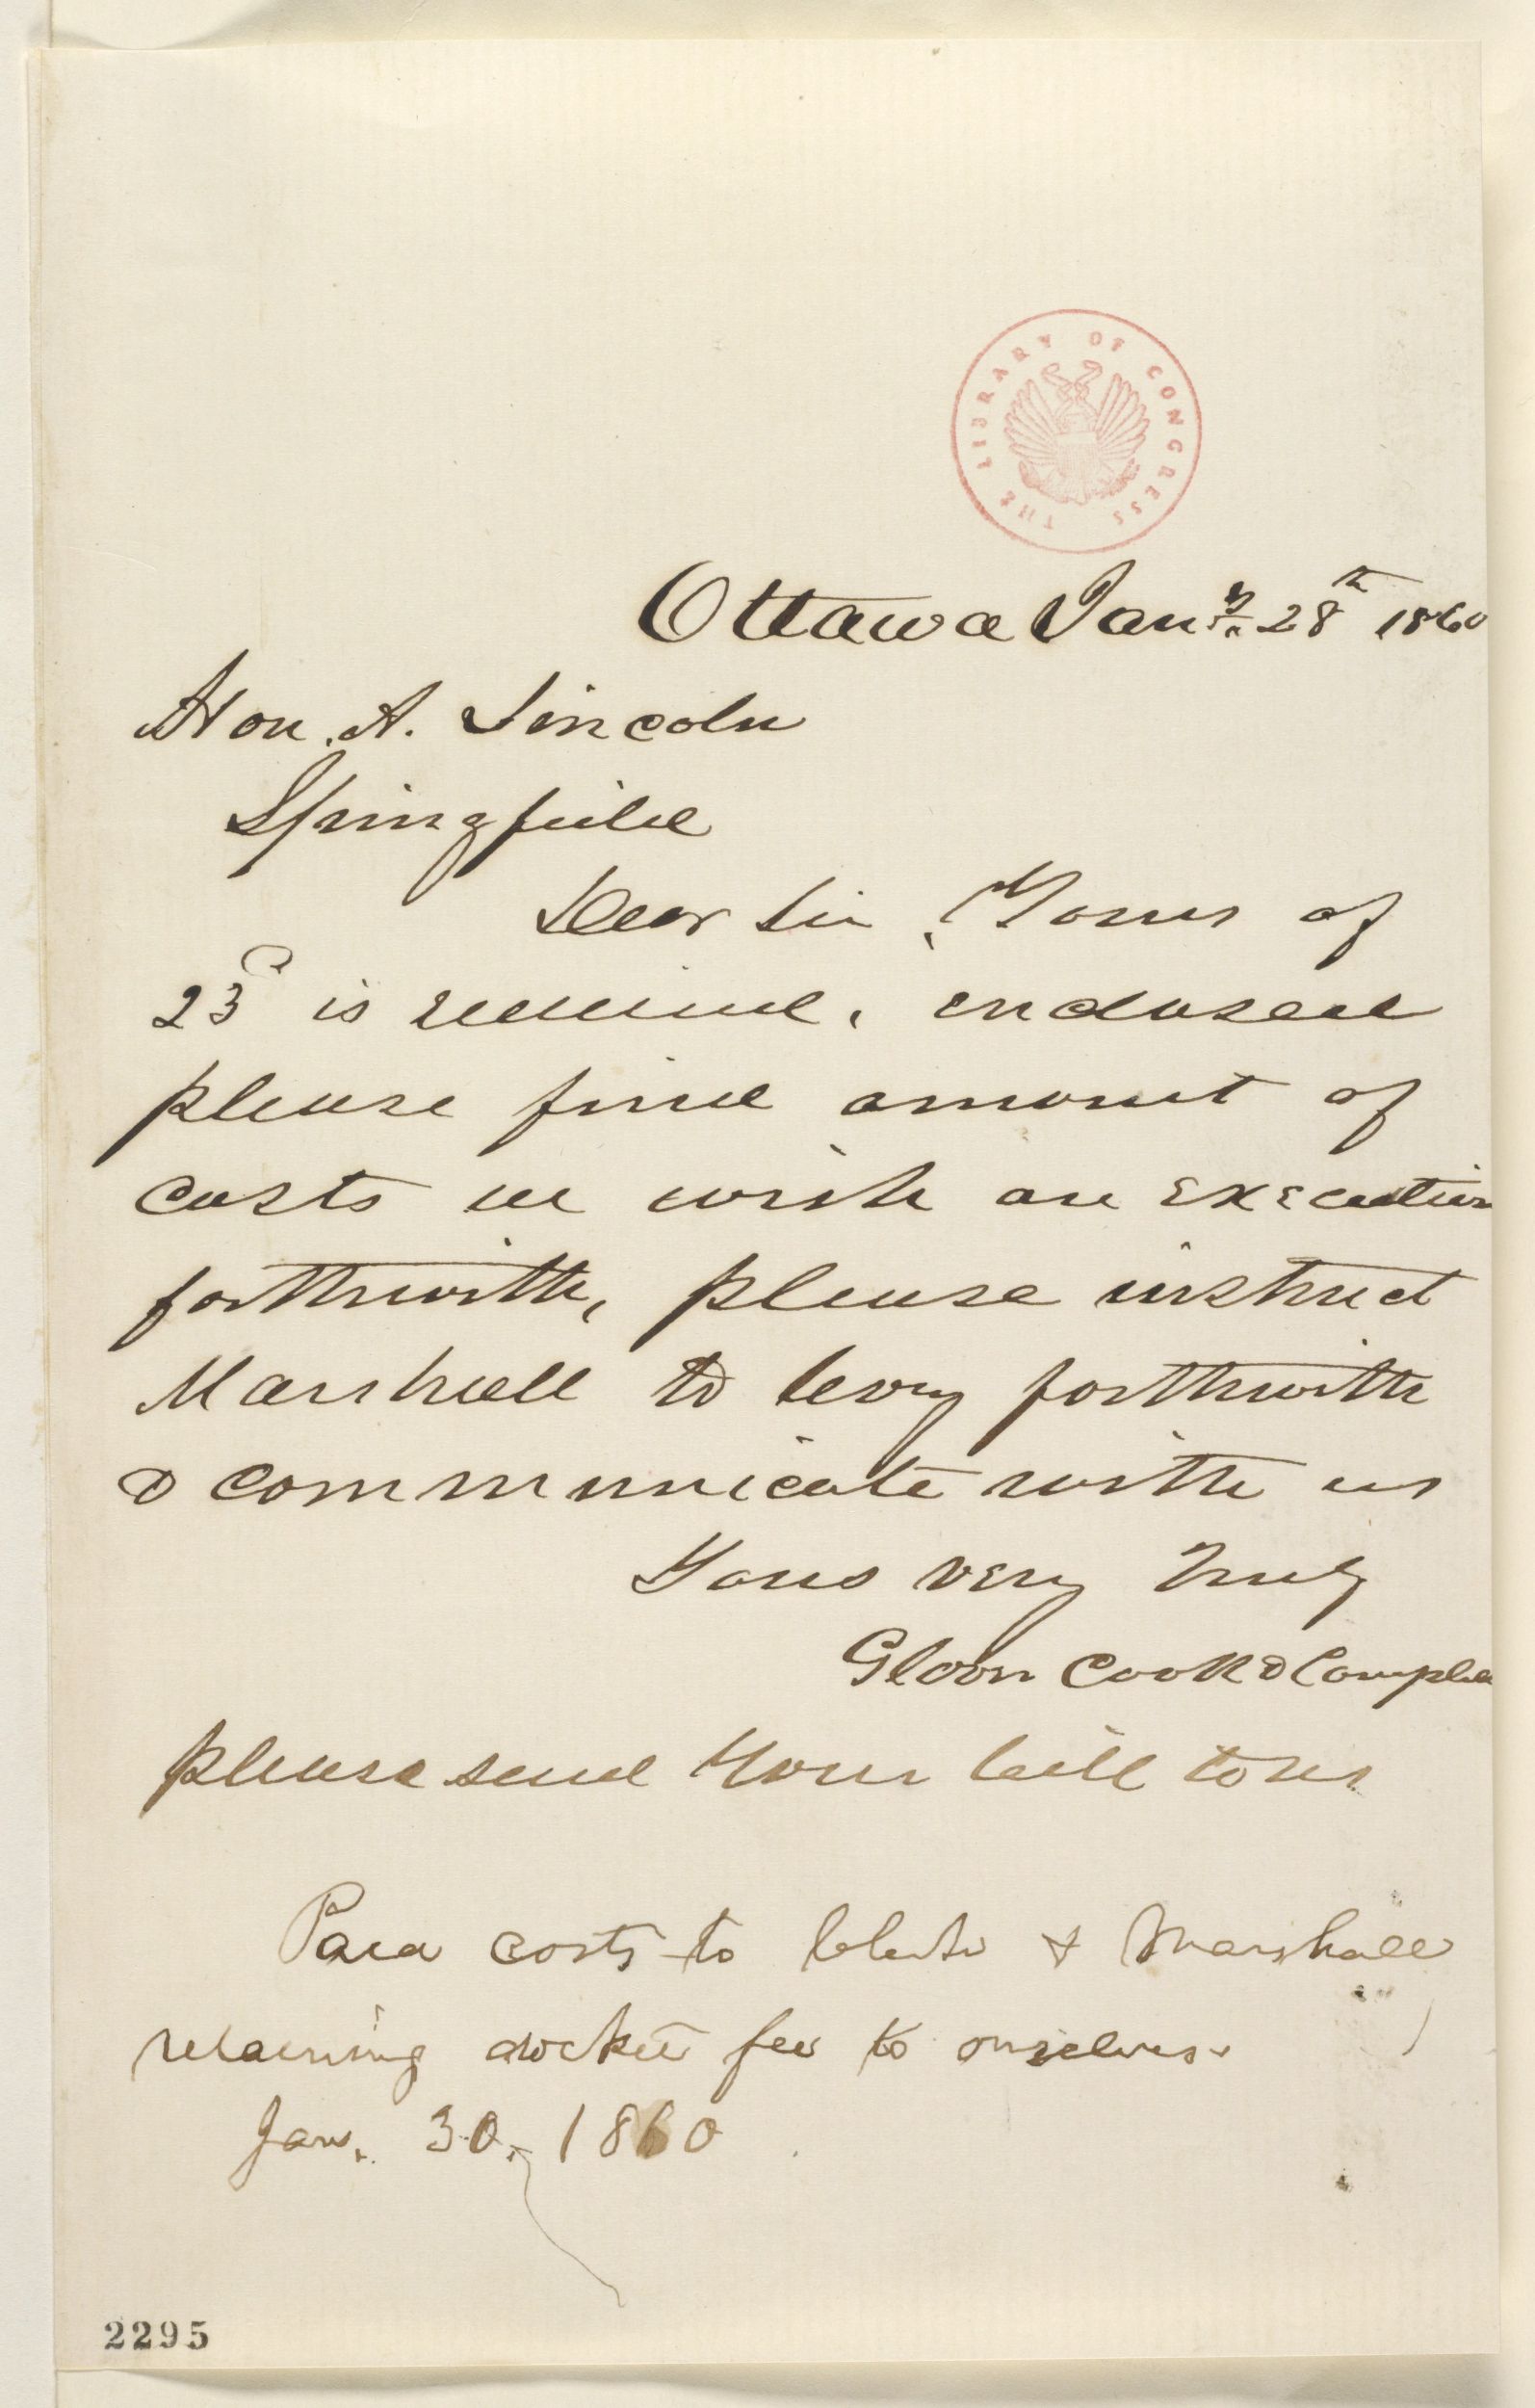 THE LIBRARY OF CONGRESS
Ottawa Jany. 28th 1860
Hon. A. Lincoln
Springfield
Dear Sir, Yours of
23d is received, enclosed
please find amount of
costs we wish an execution
forthwith, please instruct
Marshall to levy forthwith
& communicate with us
Yours very truly
Glover Cook & Campbe
please send your bill to us
Paid costs to Clerk & Marshall
retaining docket fee to ourselves.
Jan. 30, 1860
2295